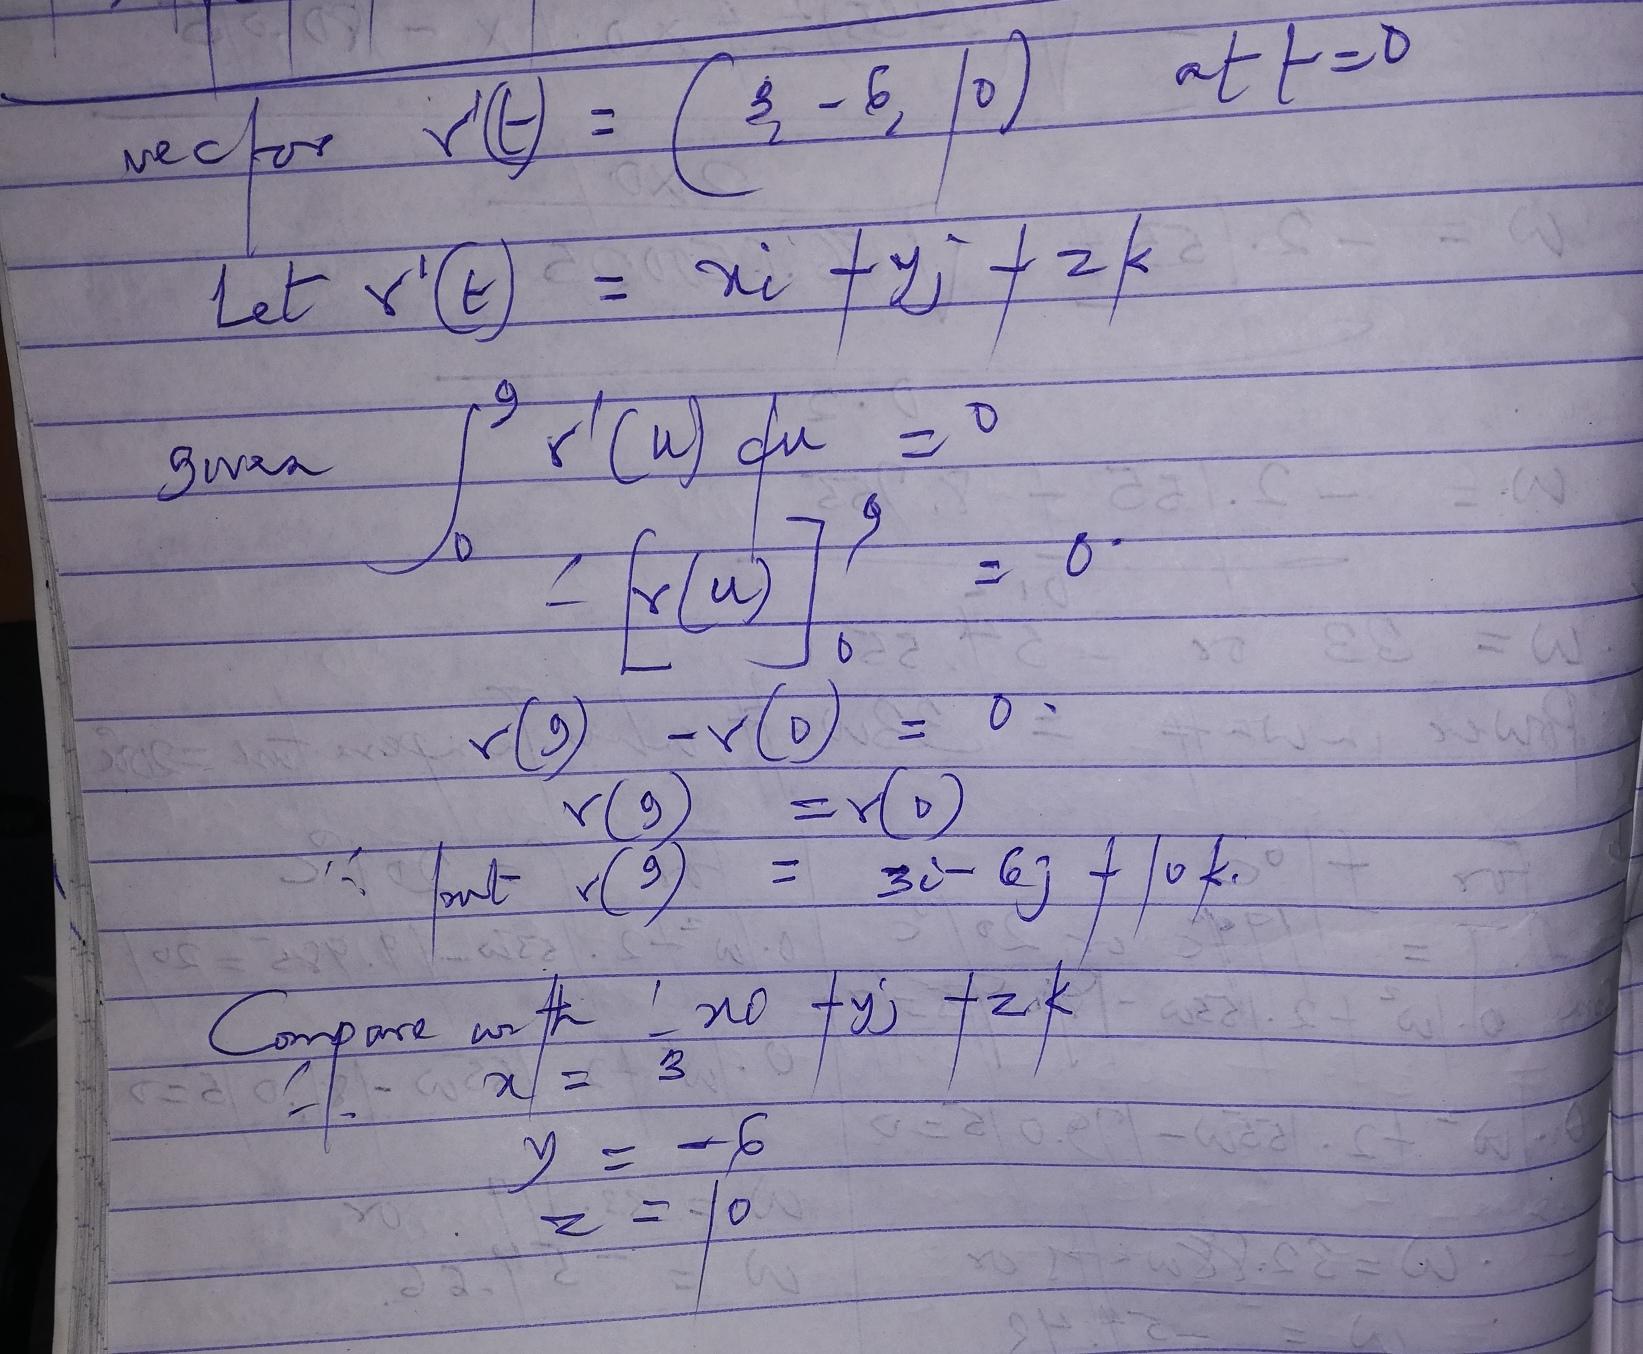 vector r'(t) = (3, -6, 10) at t=0
Let r'(t) = xi + yj + zk
given ∫₀⁹ r'(u) du = 0
= [r(u)]₀⁹ = 0.
r(9) - r(0) = 0.
r(9) = r(0)
∵ put r(9) = 3i - 6j + 10k.
Compare with xi + yj + zk
x = 3
y = -6
z = 10